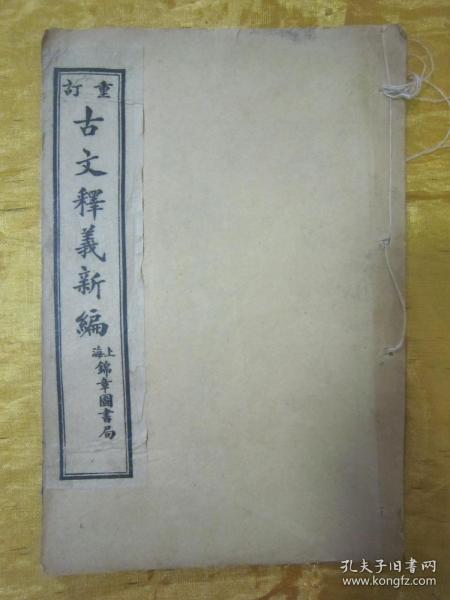 重訂
古文釋義新編
上海
錦章圖書局
孔夫子旧书网
www.kongfz.com